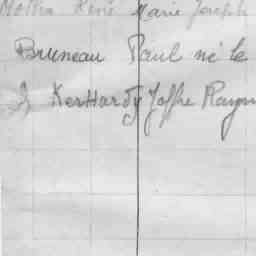 René Marie Joseph
Bruneau Paul né le
KerHardy Joffre Raym